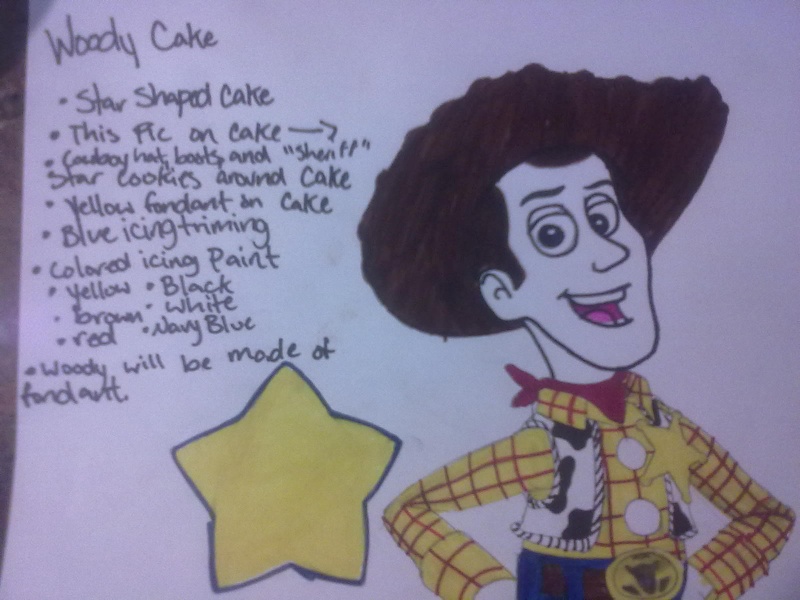 Woody Cake
• Star Shaped Cake
• This Pic on Cake →
• Cowboy hat, boots, and "Sheriff"
Star cookies around Cake
• Yellow fondant on Cake
• Blue icing triming
• Colored icing Paint
• Yellow • Black
• brown • White
• red • Navy Blue
• Woody will be made of
fondant.